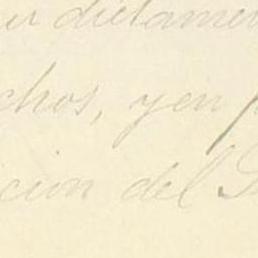 su dictamen
chos, y en p
cion del S